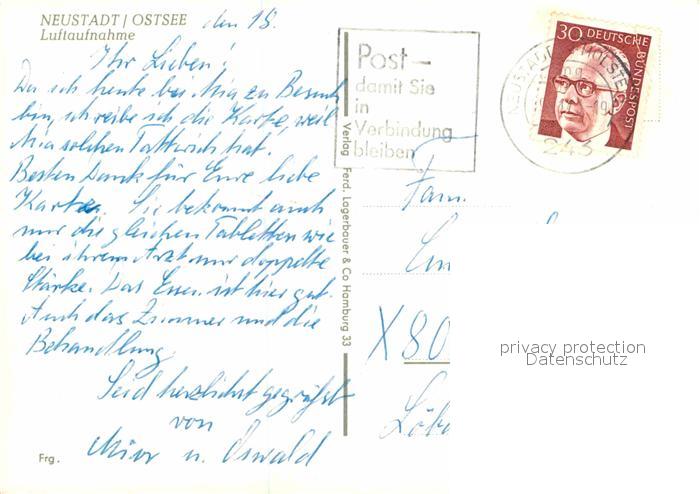 NEUSTADT / OSTSEE
Luftaufnahme
den 18.
Ihr Lieben!
Da ich heute bei Mia zu Besuch
bin, schreibe ich die Karte, weil
Mia solchen Tatterich hat.
Besten Dank für Eure liebe
Karte. Sie bekommt auch
nur die gleichen Tabletten wie
bei ihrem Arzt nur doppelte
Stärke. Das Essen ist hier gut.
Auch das Zimmer und die
Behandlung
Seid herzlichst gegrüßt
von
u. Oswald
Frg.
Verlag Ferd. Lagerbauer & Co Hamburg 33
Post-
damit Sie
in
Verbindung
bleiben
30 DEUTSCHE
BUNDESPOST
243
Fam.
X 80
Löb
privacy protection
Datenschutz